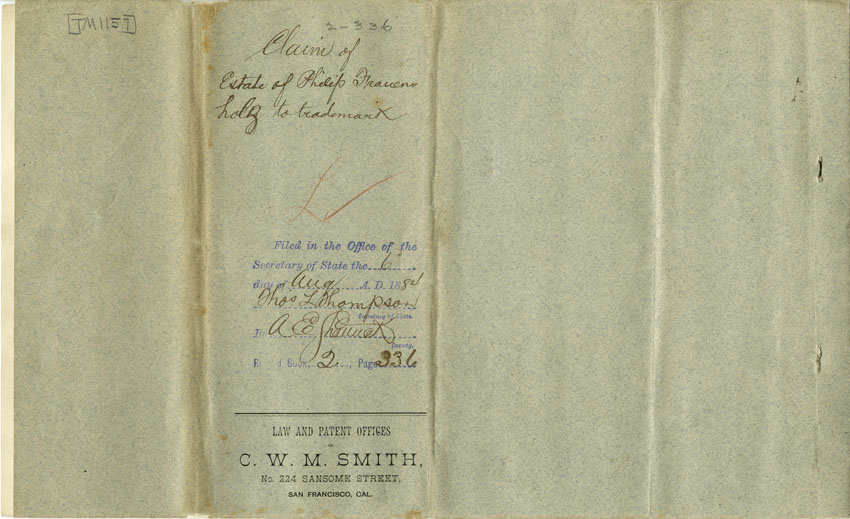 [TM1157]
2-336
Claim of
Estate of Philip Frauen
holz to trademark
Filed in the Office of the
Secretary of State the 6
day of Aug A. D. 1884
Thos L Thompson
Secretary of State.
A E
Deputy.
Book, 2, Page 336
LAW AND PATENT OFFICES
OF
C. W. M. SMITH,
No. 224 SANSOME STREET,
SAN FRANCISCO, CAL.